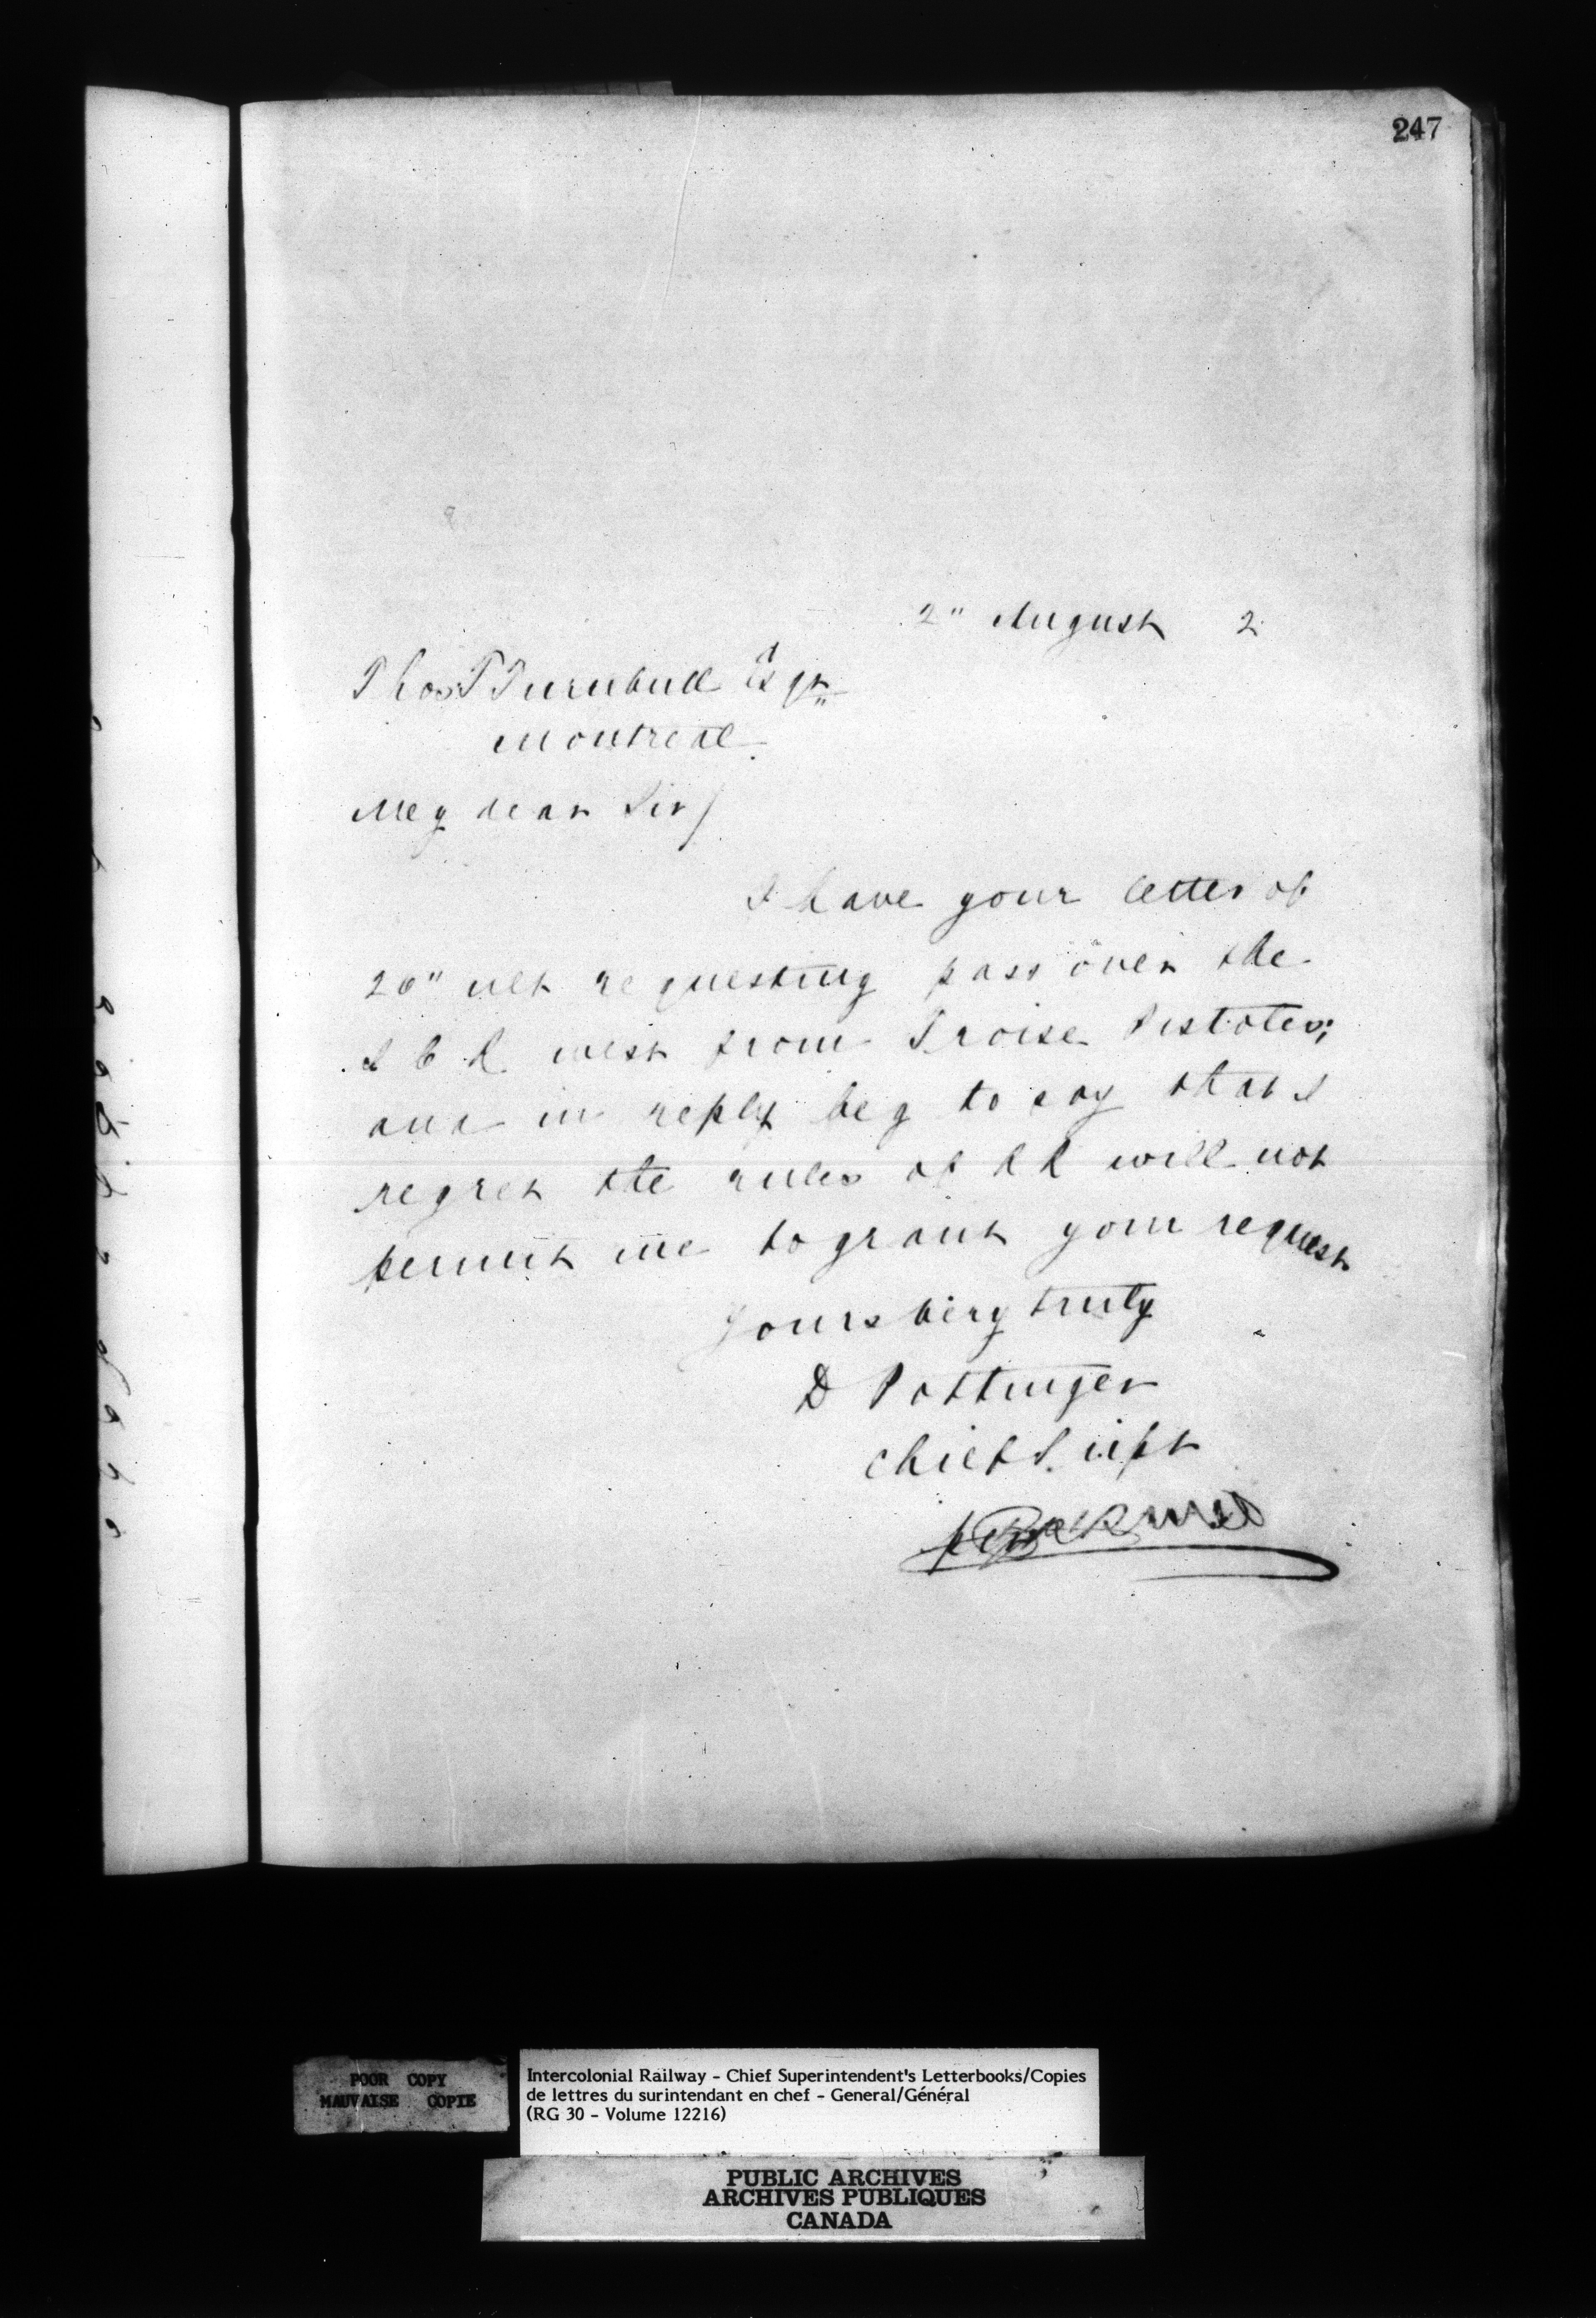 247
2" August 2
Thos T Turnbull Esqr
Montreal
My dear Sir/
I have your letter of
26" ult requesting pass over the
I C R west from Troise Pistoles;
and in reply beg to say that I
regret the rules of R R will not
permit me to grant your request
Yours very truly
D Pottinger
Chief Supt
POOR COPY
MAUVAISE COPIE
Intercolonial Railway - Chief Superintendent's Letterbooks/Copies
de lettres du surintendant en chef - General/Général
(RG 30 - Volume 12216)
PUBLIC ARCHIVES
ARCHIVES PUBLIQUES
CANADA